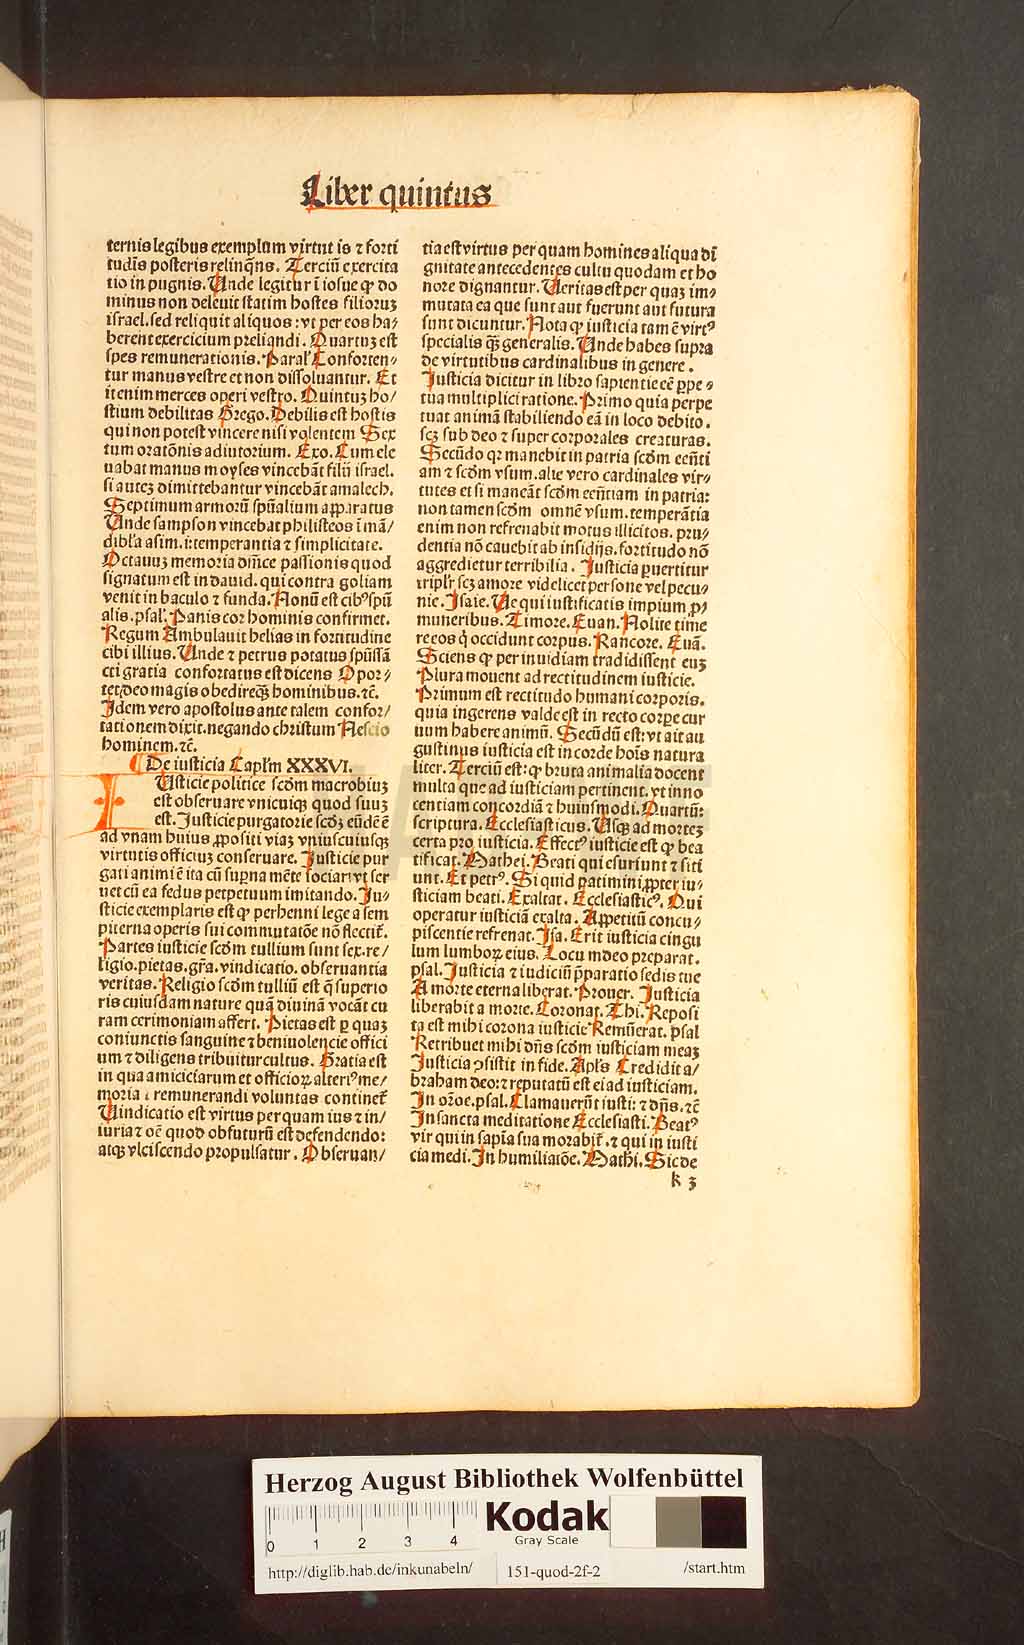 Liber quintus
ternis legibus exemplum virtut is ⁊ forti
tudīs posteris relinq̄ns. Terciū exercita
tio in pugnis. Unde legitur ī iosue ꝙ do
minus non deleuit statim hostes filioruꝫ
israel. sed reliquit aliquos: vt per eos ha/
berent exercicium preliandi. Quartuꝫ est
spes remunerationis. Paral' Conforten⸗
tur manus vestre et non dissoluantur. Et
it enim merces operi vestro. Quintuꝫ ho/
stium debilitas Grego. Debilis est hostis
qui non potest vincere nisi volentem Sex
tum oratōnis adiutorium. Exo. Cum ele
uabat manus moyses vincebāt filii israel.
si auteꝫ dimittebantur vincebāt amalech.
Septimum armorū spūalium apparatus
Unde sampson vincebat philisteos ī mā/
dibl'a asini. i: temperantia ⁊ simplicitate.
Octauuꝫ memoria dīnice passionis quod
signatum est in dauid. qui contra goliam
venit in baculo ⁊ funda. Nonū est cibꝰ spū
alis. psal'. Panis cor hominis confirmet.
Regum Ambulauit helias in fortitudine
cibi illius. Unde ⁊ petrus potatus spūssā
cti gratia confortatus est dicens Opor⸗
tet deo magis obedire qꝫ hominibus. ⁊c̄.
Idem vero apostolus ante talem confor/
tationem dixit. negando christum Nescio
hominem. ⁊c̄.
De iusticia Capl'm XXXVI.
Iusticie politice scd̄m macrobiuꝫ
est obseruare vnicuiqꝫ quod suuꝫ
est. Iusticie purgatorie scdꝫ eūdē ē
ad vnam huius ꝓpositi viaꝫ vniuscuiusqꝫ
virtutis officiuꝫ conseruare. Iusticie pur
gati animi ē ita cū supna mēte sociari vt ser
uet cū ea fedus perpetuum imitando. Iu⸗
sticie exemplaris est ꝙ perhenni lege a sem
piterna operis sui commutatōe nō flectiť.
Partes iusticie scd̄m tullium sunt sex. re/
ligio. pietas. gr̄a. vindicatio. obseruantia
veritas. Religio scd̄m tulliū est q̄ superio
ris cuiusdam nature quā diuinā vocāt cu
ram cerimoniam affert. Pietas est ꝑ quaꝫ
coniunctis sanguine ⁊ beniuolencie offici
um ⁊ diligens tribuitur cultus. Gratia est
in qua amiciciarum et officioꝝ alteriꝰ me/
moria ⁊ remunerandi voluntas contineť
Uindicatio est virtus per quam ius ⁊ in/
iuria ⁊ oē quod obfuturū est defendendo:
atqꝫ vlciscendo propulsatur. Obseruan/
tia est virtus per quam homines aliqua di
gnitate antecedentes cultu quodam et ho
nore dignantur. Ueritas est per quaꝫ im⸗
mutata ea que sunt aut fuerunt aut futura
sunt dicuntur. Nota ꝙ iusticia tam ē virtꝰ
specialis qꝫ generalis. Unde habes supra
de virtutibus cardinalibus in genere.
Iusticia dicitur in libro sapientie eē ꝑpe⸗
tua multiplici ratione. Primo quia perpe
tuat animā stabiliendo eā in loco debito.
scꝫ sub deo ⁊ super corporales creaturas.
Secūdo qꝛ manebit in patria scd̄m eēnti
am ⁊ scd̄m vsum. alie vero cardinales vir⸗
tutes et si maneāt scd̄m eēntiam in patria:
non tamen scd̄m omnē vsum. temperātia
enim non refrenabit motus illicitos. pru⸗
dentia nō cauebit ab insidijs. fortitudo nō
aggredietur terribilia. Iusticia puertitur
tripl'r scꝫ amore videlicet persone vel pecu⸗
nie. Isaie. Ue qui iustificatis impium ꝓ
muneribus. Timore. Euan. Nolite time
re eos q̇ occidunt corpus. Rancore. Euā.
Sciens ꝙ per inuidiam tradidissent euꝫ
Plura mouent ad rectitudinem iusticie.
Primum est rectitudo humani corporis.
quia ingerens valde est in recto corpe cur
uum habere animū. Secūdū est: vt ait au
gustinus iusticia est in corde hoīs natura
liter. Terciū est: ꝙ bruta animalia docent
multa que ad iusticiam pertinent. vt inno
centiam concordiā ⁊ huiusmodi. Quartū:
scriptura. Ecclesiasticus. Usqꝫ ad morteꝫ
certa pro iusticia. Effectꝰ iusticie est ꝙ bea
tificat. Mathei. Beati qui esuriunt ⁊ siti
unt. Et petrꝰ. Si quid patimini ꝓpter iu⸗
sticiam beati. Exaltat. Ecclesiasticꝰ. Qui
operatur iusticiā exalta. Appetitū concu⸗
piscentie refrenat. Isa. Erit iusticia cingu
lum lumboꝝ eius. Locu mdeo preparat.
psal. Iusticia ⁊ iudiciū p̄paratio sedis tue
A morte eterna liberat. Prouer. Iusticia
liberabit a morte. Coronat. Thi. Reposi
ta est mihi corona iusticie Remūerat. psal
Retribuet mihi dn̄s scd̄m iusticiam meaꝫ
Iusticia ꝯsistit in fide. Apl's Credidit a/
braham deo: ⁊ reputatū est ei ad iusticiam.
In or̄oe. psal. Clamauerūt iusti: ⁊ dn̄s. ⁊c̄
In sancta meditatione Ecclesiasti. Beatꝰ
vir qui in sapīa sua morabiť. ⁊ qui in iusti
cia medi. In humiliatōe. Mathi. Sic de
k 3
Herzog August Bibliothek Wolfenbüttel
0 1 2 3 4
Kodak
Gray Scale
http://diglib.hab.de/inkunabeln/ 151-quod-2f-2 /start.htm